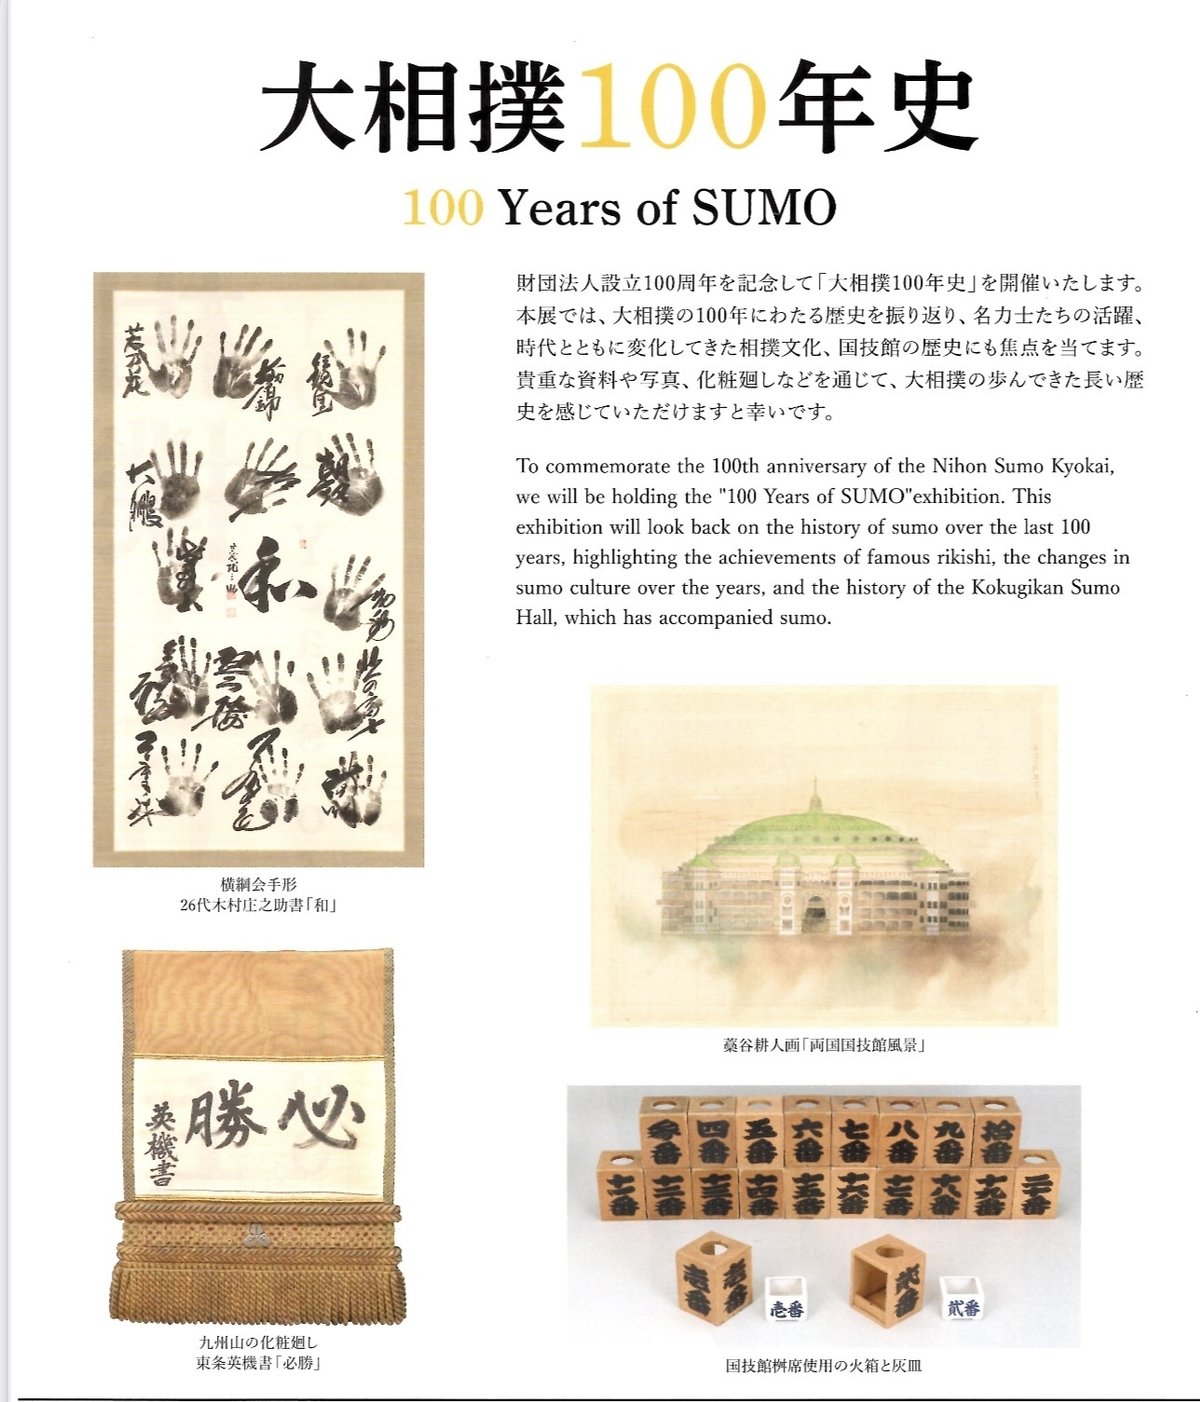 大相撲100年史
100 Years of SUMO
財団法人設立100周年を記念して「大相撲100年史」を開催いたします。
本展では、大相撲の100年にわたる歴史を振り返り、名力士たちの活躍、
時代とともに変化してきた相撲文化、国技館の歴史にも焦点を当てます。
貴重な資料や写真、化粧廻しなどを通じて、大相撲の歩んできた長い歴
史を感じていただけますと幸いです。
To commemorate the 100th anniversary of the Nihon Sumo Kyokai,
we will be holding the "100 Years of SUMO"exhibition. This
exhibition will look back on the history of sumo over the last 100
years, highlighting the achievements of famous rikishi, the changes in
sumo culture over the years, and the history of the Kokugikan Sumo
Hall, which has accompanied sumo.
大鵬
和
横綱会手形
26代木村庄之助書「和」
必勝
英機書
九州山の化粧廻し
東条英機書「必勝」
藁谷耕人画「両国国技館風景」
参番 四番 五番 六番 七番 八番 九番 拾番
十一番 十二番 十三番 十四番 十五番 十六番 十七番 十八番 十九番 二十番
壱番 壱番 壱番 弐番 貮番
国技館桝席使用の火箱と灰皿